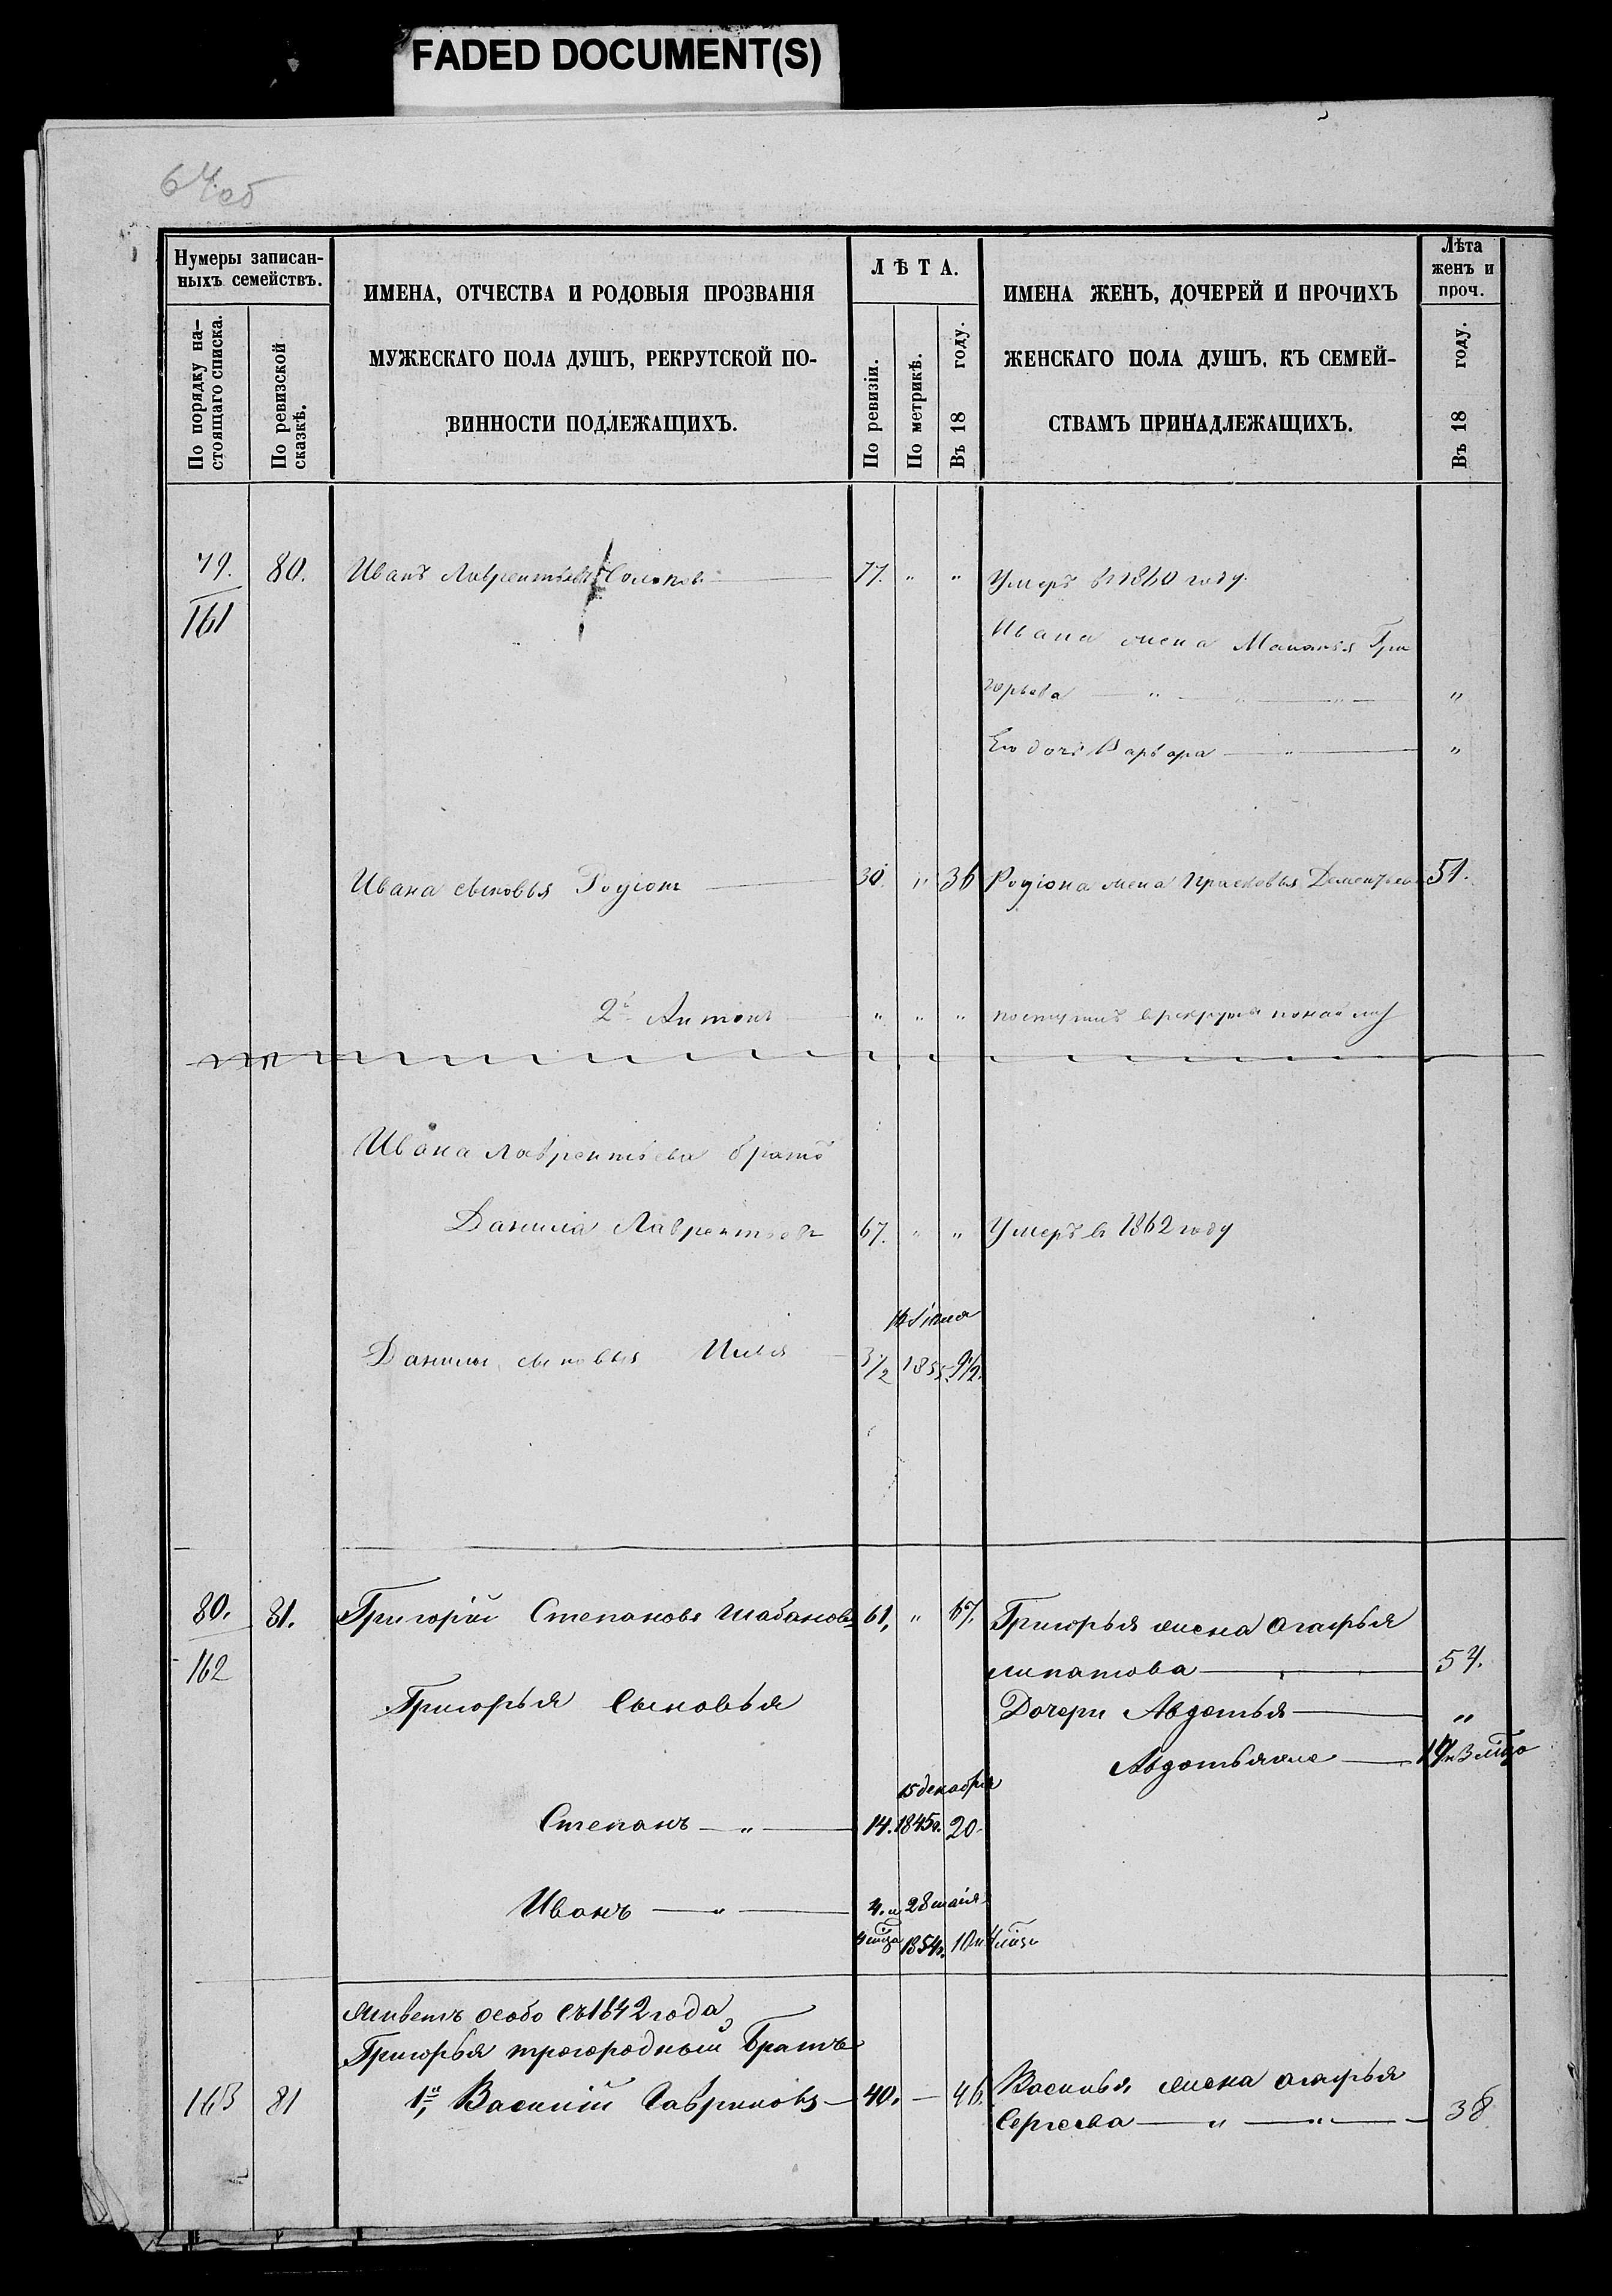 FADED DOCUMENT(S)
64 об
Нумеры записан-
ныхъ семействъ.
По порядку на-
стоящаго списка.
По ревизской
сказкѣ.
ИМЕНА, ОТЧЕСТВА И РОДОВЫЯ ПРОЗВАНІЯ
МУЖЕСКАГО ПОЛА ДУШЪ, РЕКРУТСКОЙ ПО-
ВИННОСТИ ПОДЛЕЖАЩИХЪ.
ЛѢТА.
По ревизіи.
По метрикѣ.
Въ 18 году.
ИМЕНА ЖЕНЪ, ДОЧЕРЕЙ И ПРОЧИХЪ
ЖЕНСКАГО ПОЛА ДУШЪ, КЪ СЕМЕЙ-
СТВАМЪ ПРИНАДЛЕЖАЩИХЪ.
Лѣта
женъ и
проч.
Въ 18 году.
79. 80. Иванъ Лаврентьевъ 77. " " Умеръ в
161
Ивана жена Гри
горьева " " " "
Его дочь Варвара " "
Ивана сыновья Родіонъ 30. " 36 Родіона жена Прасковья 51.
2й Антонъ " " " поступилъ
Ивана Лаврентьева братъ
Данила Лаврентьевъ 67. " " Умеръ в 1862 году
Данилы сыновья Илья 3½ 1855 9½.
80. 81. Григорій Степановъ Шабановъ 61, " 67. Григорья жена Огафья
162 Липатова 54.
Григорья Сыновья Дочери Авдотья "
Авдотья же
15 декабря
Степанъ " 14. 1845г. 20.
Иванъ " 4. и 28 мая
4 мѣсца 1854г. 10 и
Живетъ особо съ 1842 года
Григорья троюродный Братъ
163 81 1й, Василій Гавриловъ 40. — 46. Василья жена Огафья
Сергеева " " 38